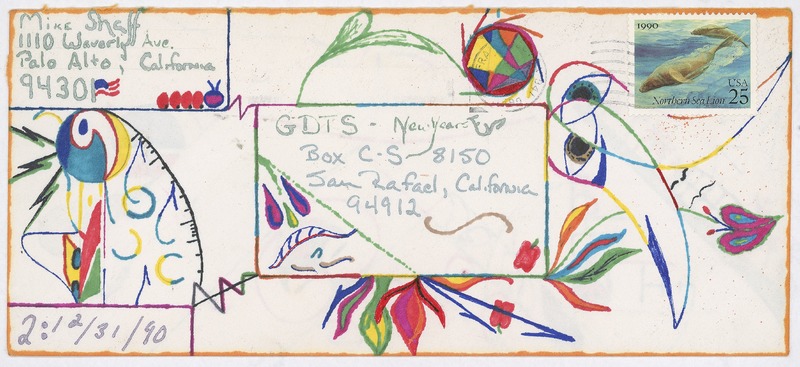 Mike Shaff
1110 Waverly Ave.
Palo Alto, California
94301
1990
USA
Northern Sea Lion 25
GDTS - New Years Eve
Box C-S-8150
San Rafael, California
94912
2:12/31/90